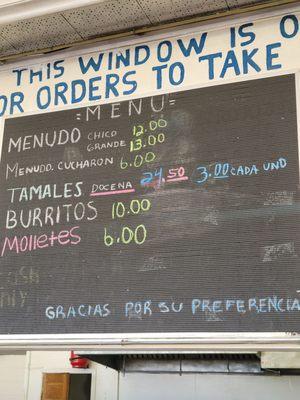 THIS WINDOW IS O
OR ORDERS TO TAKE
MENU
MENUDO CHICO 12.00
GRANDE 13.00
MENUDO. CUCHARON 6.00
TAMALES DOCENA 24.50 3.00 CADA UNO
BURRITOS 10.00
Molletes 6.00
GRACIAS POR SU PREFERENCIA